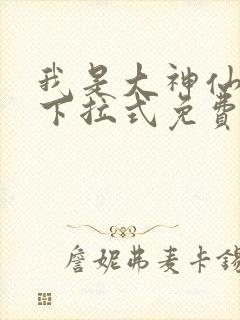 我是大神仙
下拉式免费
詹妮弗麦卡锡